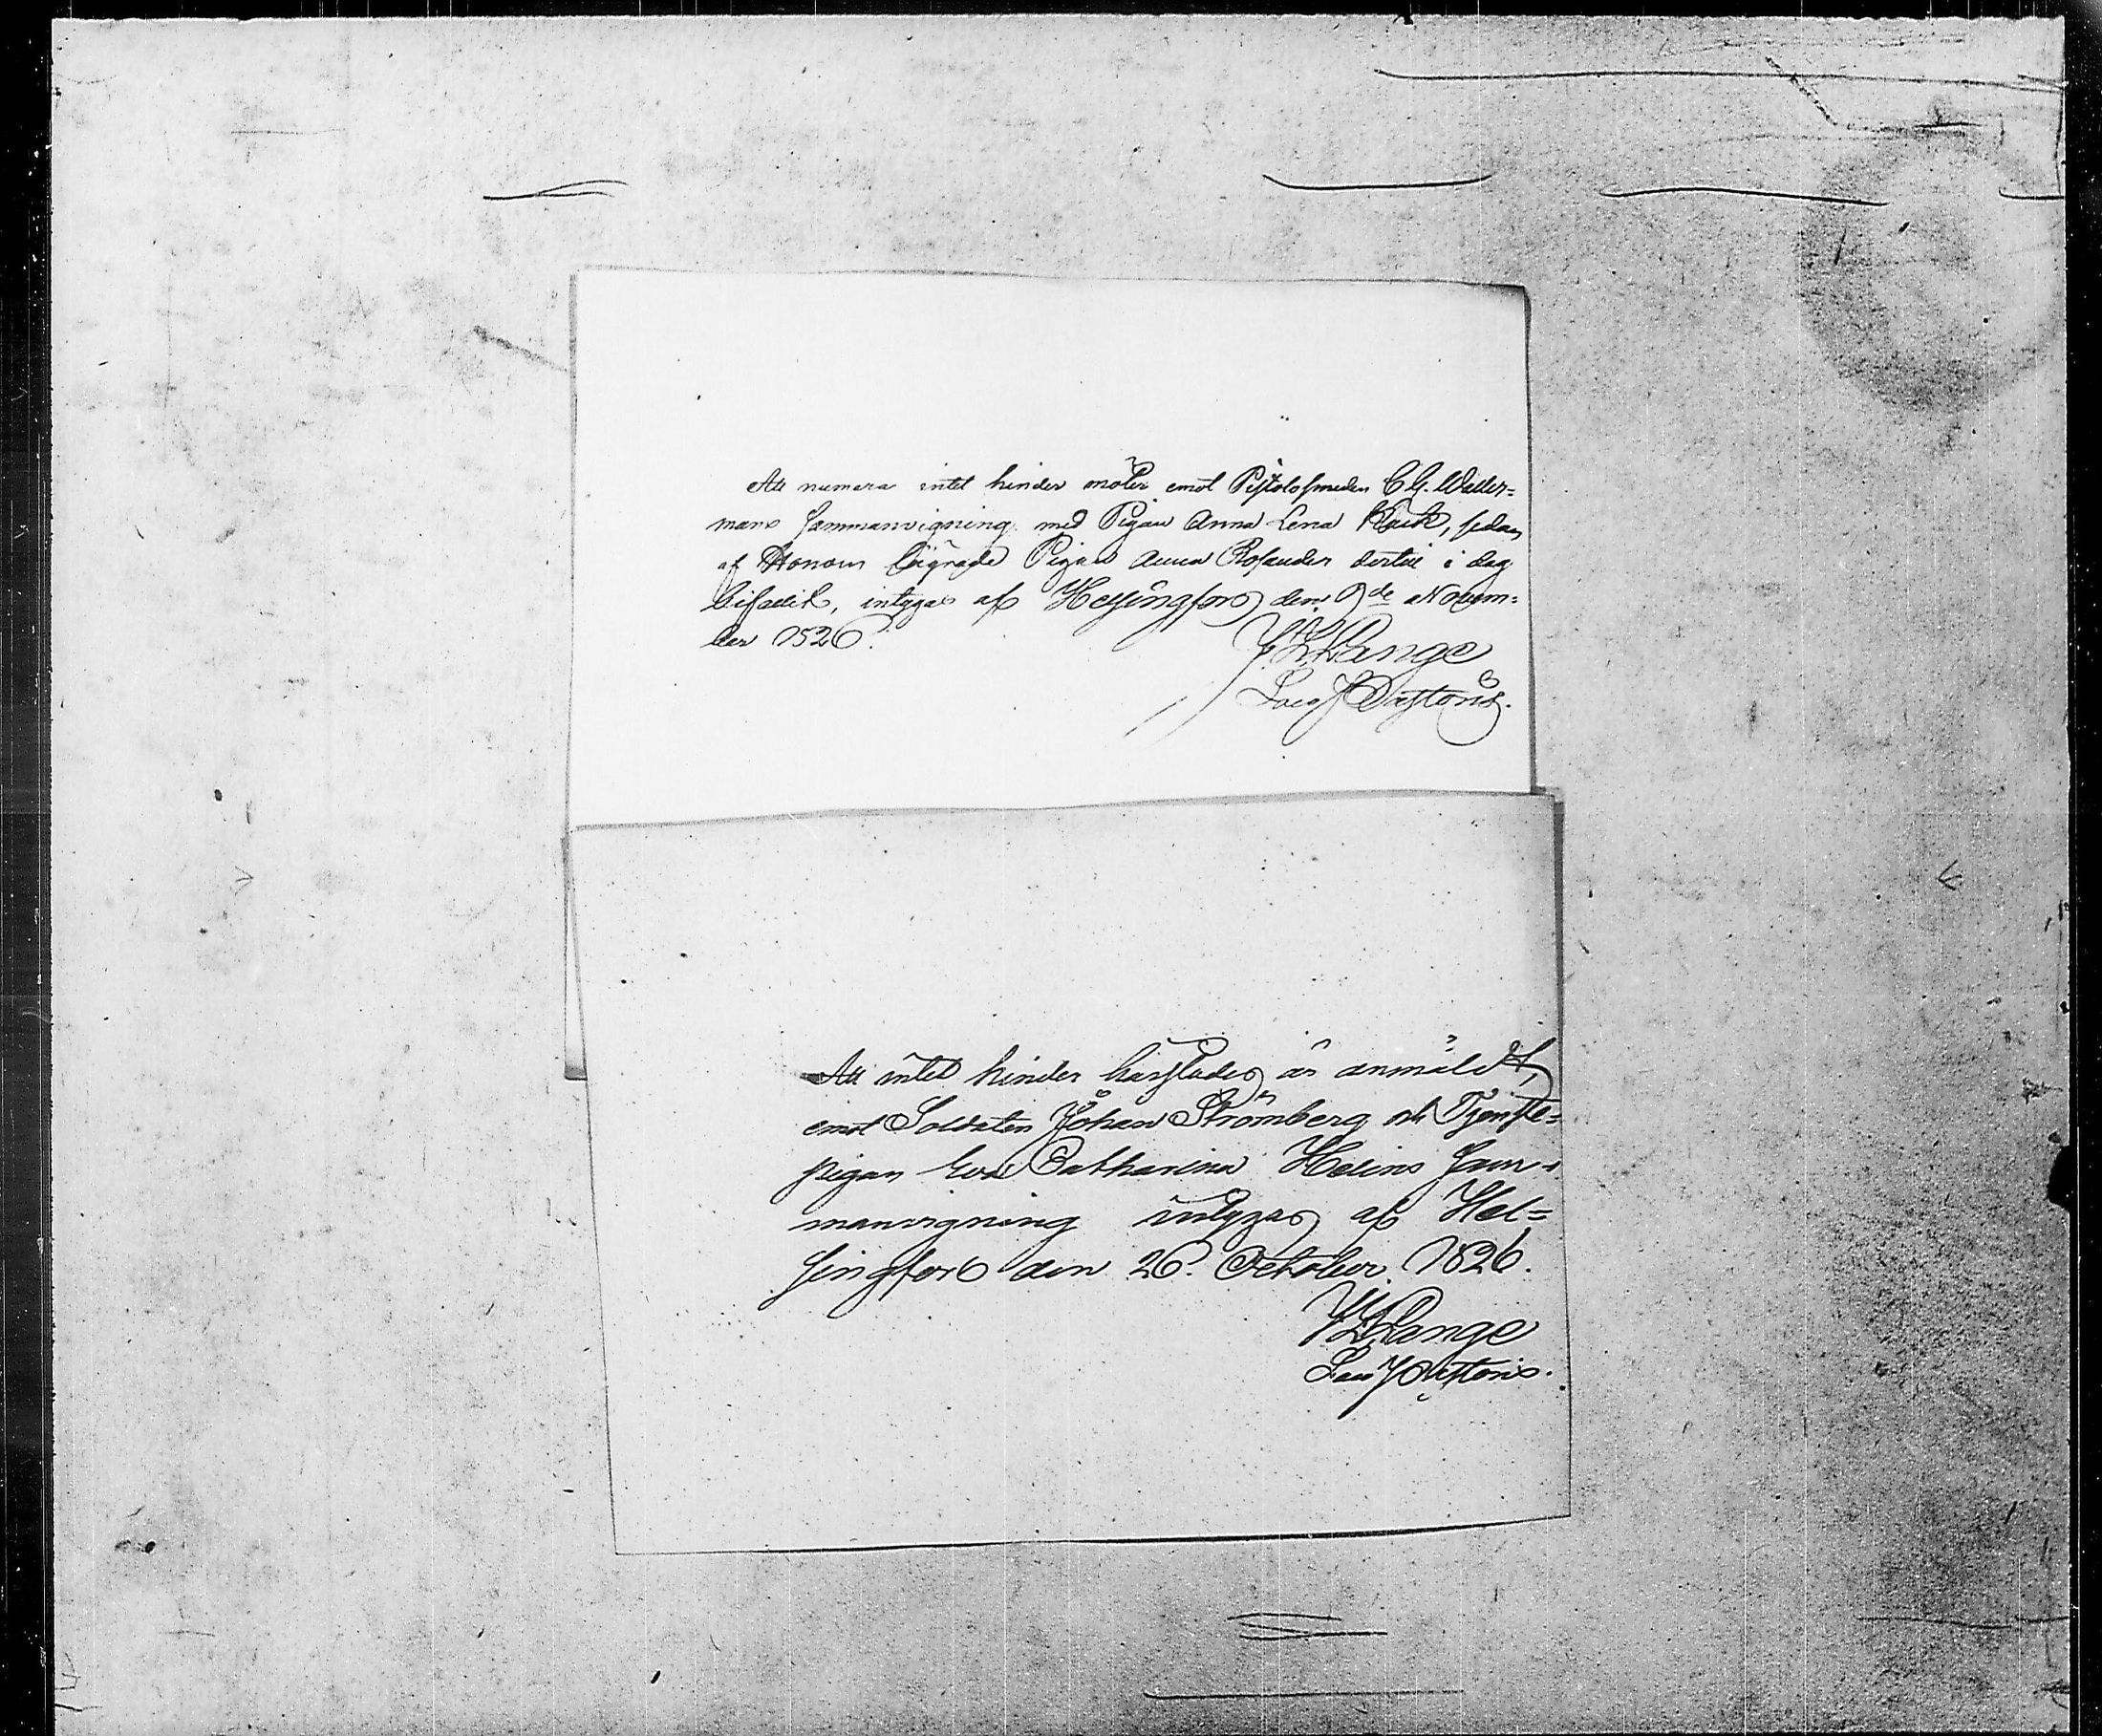 Att numera intet hinder möter emot Pistolsmeden C. G. Waller=
mans sammanvigning med Pigan Anna Lena Kjack, sedan
af Honom lägrade Pigan Anna Rosander dertill i dag
bifallit, intygas af Helsingfors den 9de Novem=
ber 1826.
Lange
Loco Pastoris.
Att intet hinder härstädes är anmäldt,
emot Soldaten Johan Strömberg och Tjenste=
pigan Eva Catharina Helins sam=
manvigning intygas af Hel=
singfors den 26. October 1826.
Lange
Loco Pastoris.